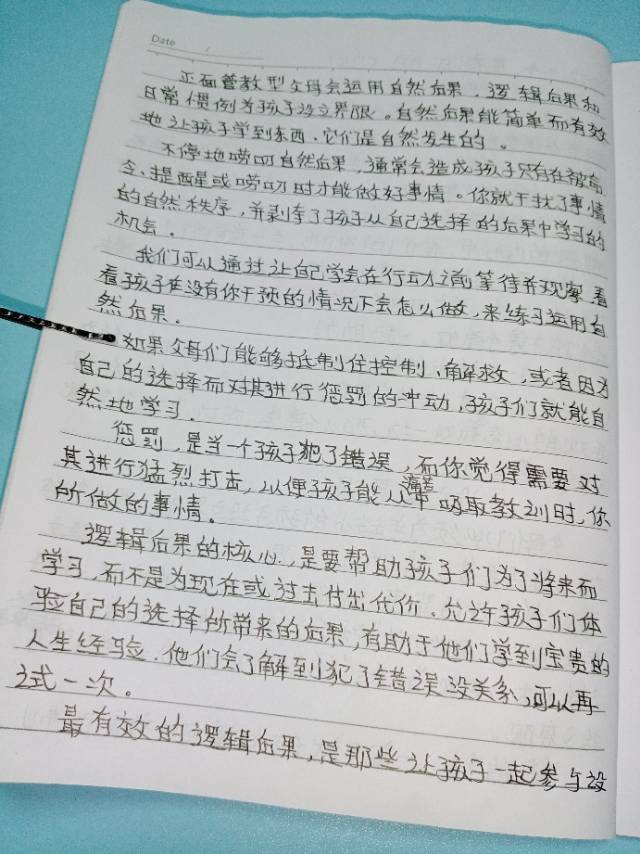 Date
正面管教型父母会运用自然后果，逻辑后果和
日常惯例为孩子设立界限。自然后果能简单而有效
地让孩子学到东西.它们是自然发生的。
不停地唠叨自然后果，通常会造成孩子只有在被命
令、提醒或唠叨时才能做好事情。你就干扰了事情
的自然秩序，并剥夺了孩子从自己选择的后果中学习的
机会.
我们可以通过让自己学会在行动之前等待并观察，看
看孩子在没有你干预的情况下会怎么做，来练习运用自
然后果.
如果父母们能够抵制住控制、解救，或者因为
自己的选择而对其进行惩罚的冲动，孩子们就能自
然地学习.
惩罚，是当一个孩子犯了错误，而你觉得需要对
其进行猛烈打击，以便孩子能从痛苦中吸取教训时，你
所做的事情.
逻辑后果的核心，是要帮助孩子们为了将来而
学习，而不是为现在或过去付出代价.允许孩子们体
验自己的选择所带来的后果，有助于他们学到宝贵的
人生经验.他们会了解到犯了错误没关系，可以再
试一次。
最有效的逻辑后果，是那些让孩子一起参与设